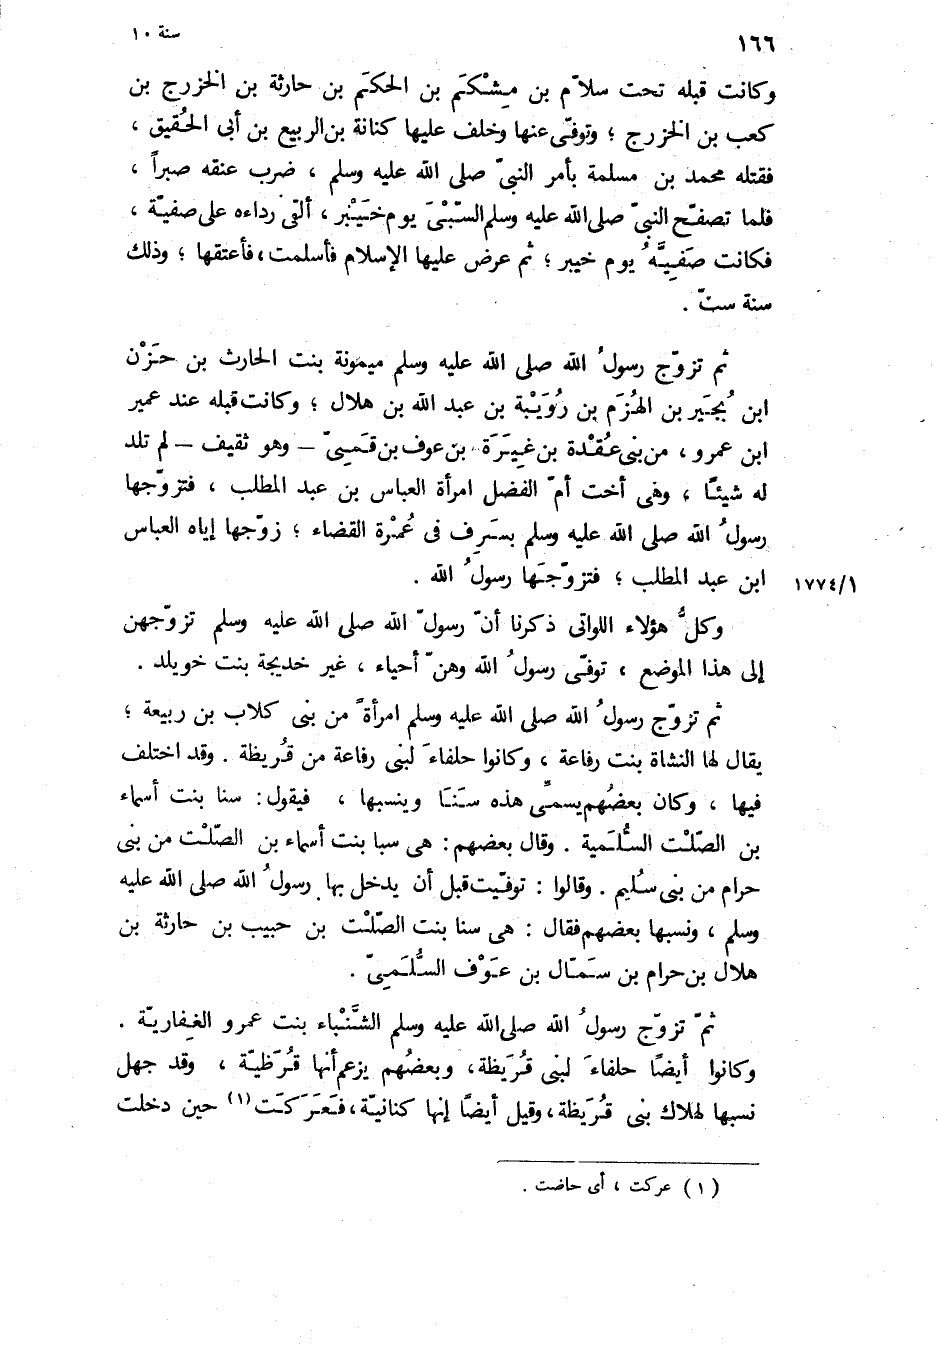 ١٦٦ سنة ١٠
وكانت قبله تحت سلاّم بن مِشْكَم بن الحكَم بن حارثة بن الخزرج بن
كعب بن الخزرج ؛ وتوفّى عنها وخلف عليها كنانة بن الربيع بن أبى الحُقيق ،
فقتله محمد بن مسلمة بأمر النبىّ صلى الله عليه وسلم ، ضرب عنقه صبراً ،
فلما تصفّح النبىّ صلى الله عليه وسلم السّبْىَ يوم خَيْبر ، ألقى رداءه على صفيّة ،
فكانت صَفِيَّهُ يوم خيبر ؛ ثم عرض عليها الإسلام فأسلمت ، فأعتقها ؛ وذلك
سنة ستّ .
ثم تزوّج رسولُ الله صلى الله عليه وسلم ميمونة بنت الحارث بن حَزْن
ابن بُجَير بن الهُزَم بن رُوَيْبة بن عبد الله بن هلال ؛ وكانت قبله عند عمير
ابن عمرو ، من بنى عُقْدة بن غِيَرَة بن عوف بن قَسِىّ – وهو ثقيف – لم تلد
له شيئًا ، وهى أخت أمّ الفضل امرأة العباس بن عبد المطلب ، فتزوّجها
رسولُ الله صلى الله عليه وسلم بسَرِف فى عُمْرة القضاء ؛ زوّجها إياه العباس
ابن عبد المطلب ؛ فتزوّجَها رسولُ الله . ١٧٧٤/١
وكلُّ هؤلاء اللواتى ذكرنا أنّ رسولَ الله صلى الله عليه وسلم تزوّجهن
إلى هذا الموضع ، توفّى رسولُ الله وهنّ أحياء ، غير خديجة بنت خويلد .
ثم تزوّج رسولُ الله صلى الله عليه وسلم امرأةً من بنى كلاب بن ربيعة ؛
يقال لها النشاة بنت رفاعة ، وكانوا حلفاءَ لبنى رفاعة من قُريظة . وقد اختلف
فيها ، وكان بعضُهم يسمّى هذه سَنَا وينسبها ، فيقول : سنا بنت أسماء
بن الصّلْت السُّلَمية . وقال بعضهم : هى سبا بنت أسماء بن الصّلْت من بنى
حرام من بنى سُليم . وقالوا : توفّيت قبل أن يدخل بها رسولُ الله صلى الله عليه
وسلم ، ونسبها بعضهم فقال : هى سنا بنت الصّلْت بن حبيب بن حارثة بن
هلال بن حرام بن سَمَال بن عَوْف السُّلَمىّ .
ثمّ تزوّج رسولُ الله صلى الله عليه وسلم الشَّنْباء بنت عمرو الغِفاريّة .
وكانوا أيضًا حلفاءَ لبنى قُرَيظة ، وبعضُهم يزعم أنها قُرَظيّة ، وقد جهل
نسبها لهلاك بنى قُرَيظة ، وقيل أيضًا إنها كنانيّة ، فعَرَكَت (١) حين دخلت
(١) عركت ، أى حاضت .